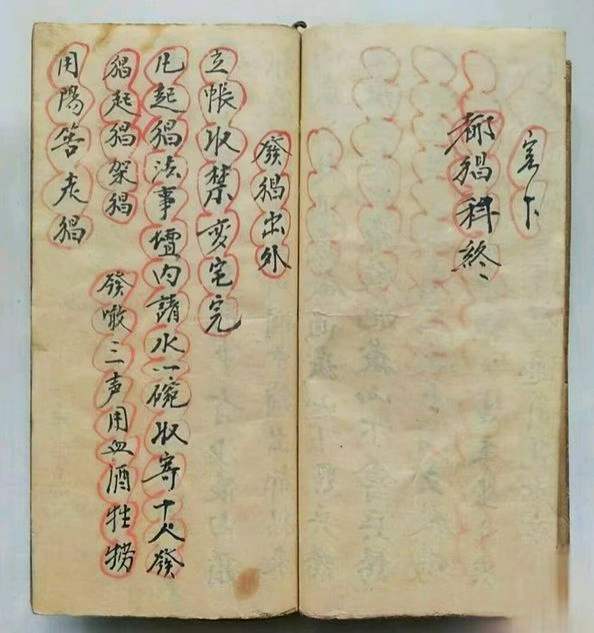 下
都猖科終
發猖出外
立帳収禁变宅完
凡起猖法事壇内請水一碗収寄十人發
猖起猖架猖 發三声用血酒牲
用陽筶老猖